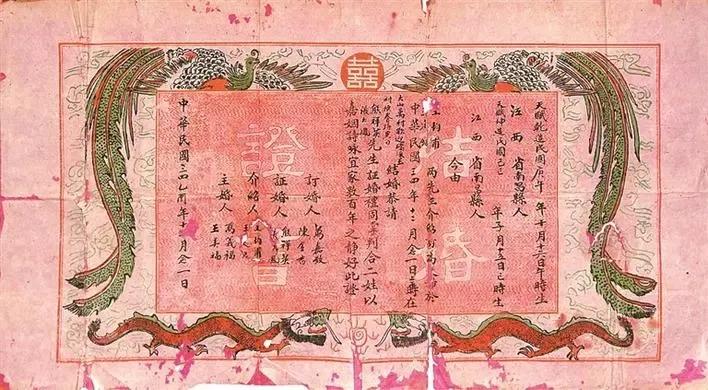 囍
結婚證書
天賦乾造民國庚午年十月十六日午時生
江西省南昌縣人
天賦坤造民國己巳年子月十五日巳時生
江西省南昌縣人
今由
均甫兩先生介紹訂為於
中華民國三四年十二月念一日在
結婚恭請
熊祥英先生証婚禮同判合二姓以
嘉姻詩咏宜家數百年之静好此證
訂婚人 萬嘉 陳金香
証婚人 熊祥英
介紹人 王均甫
主婚人 萬義福 王美福
中華民國三四乙酉年十二月念一日